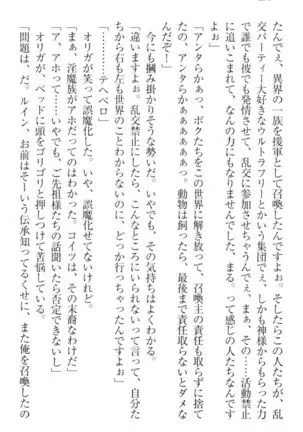 たんですよぉ。異界の一族を援軍として召喚したんですよぉ。そしたらこの人たちが、乱
交パーティー大好きなウルトラフリーとかいう集団でぇ。しかも神様からもらった力
で誰でも彼でも発情させて、乱交に参加させちゃうんでぇ、まぁ、その……活動禁止
に追いこまれて、なんの力にもなりませんでした、まる。って感じの人たちなんです
よぉ」
「アンタらかぁっ、ボクたちをこの世界に解き放って、召喚主の責任も取らずに捨て
たの、アンタらかぁっ。動物は飼ったら、最後まで責任取らないとダメな
んだぞ！」
今にも掴み掛かりそうな勢いだ。いや、その気持ちはよくわかる。
「違いますよぉ。乱交禁止にしたら、こんなところにいられないって言って、自分た
ちから右も左も世界のことわからないのに、どっか行っちゃったんですよぉ」
「…………テヘペロ」
オリガが笑って誤魔化した。いや、誤魔化せてないけれど。
「まぁ、淫魔族がアホだってのはわかった。コイツは、その末裔なわけだ」
「ア、アホって……いやでも、ご先祖様たちの話聞いたら否定できないし」
オリガが、ベッドに頭をゴリゴリと押しつけて苦悩している。
「問題は、だ。ルイン、お前はそーいう伝承知ってるくせに、また俺を召喚したの